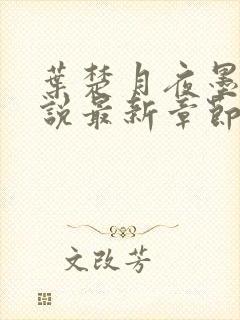 葉楚月夜墨
說最新章節
文改芳